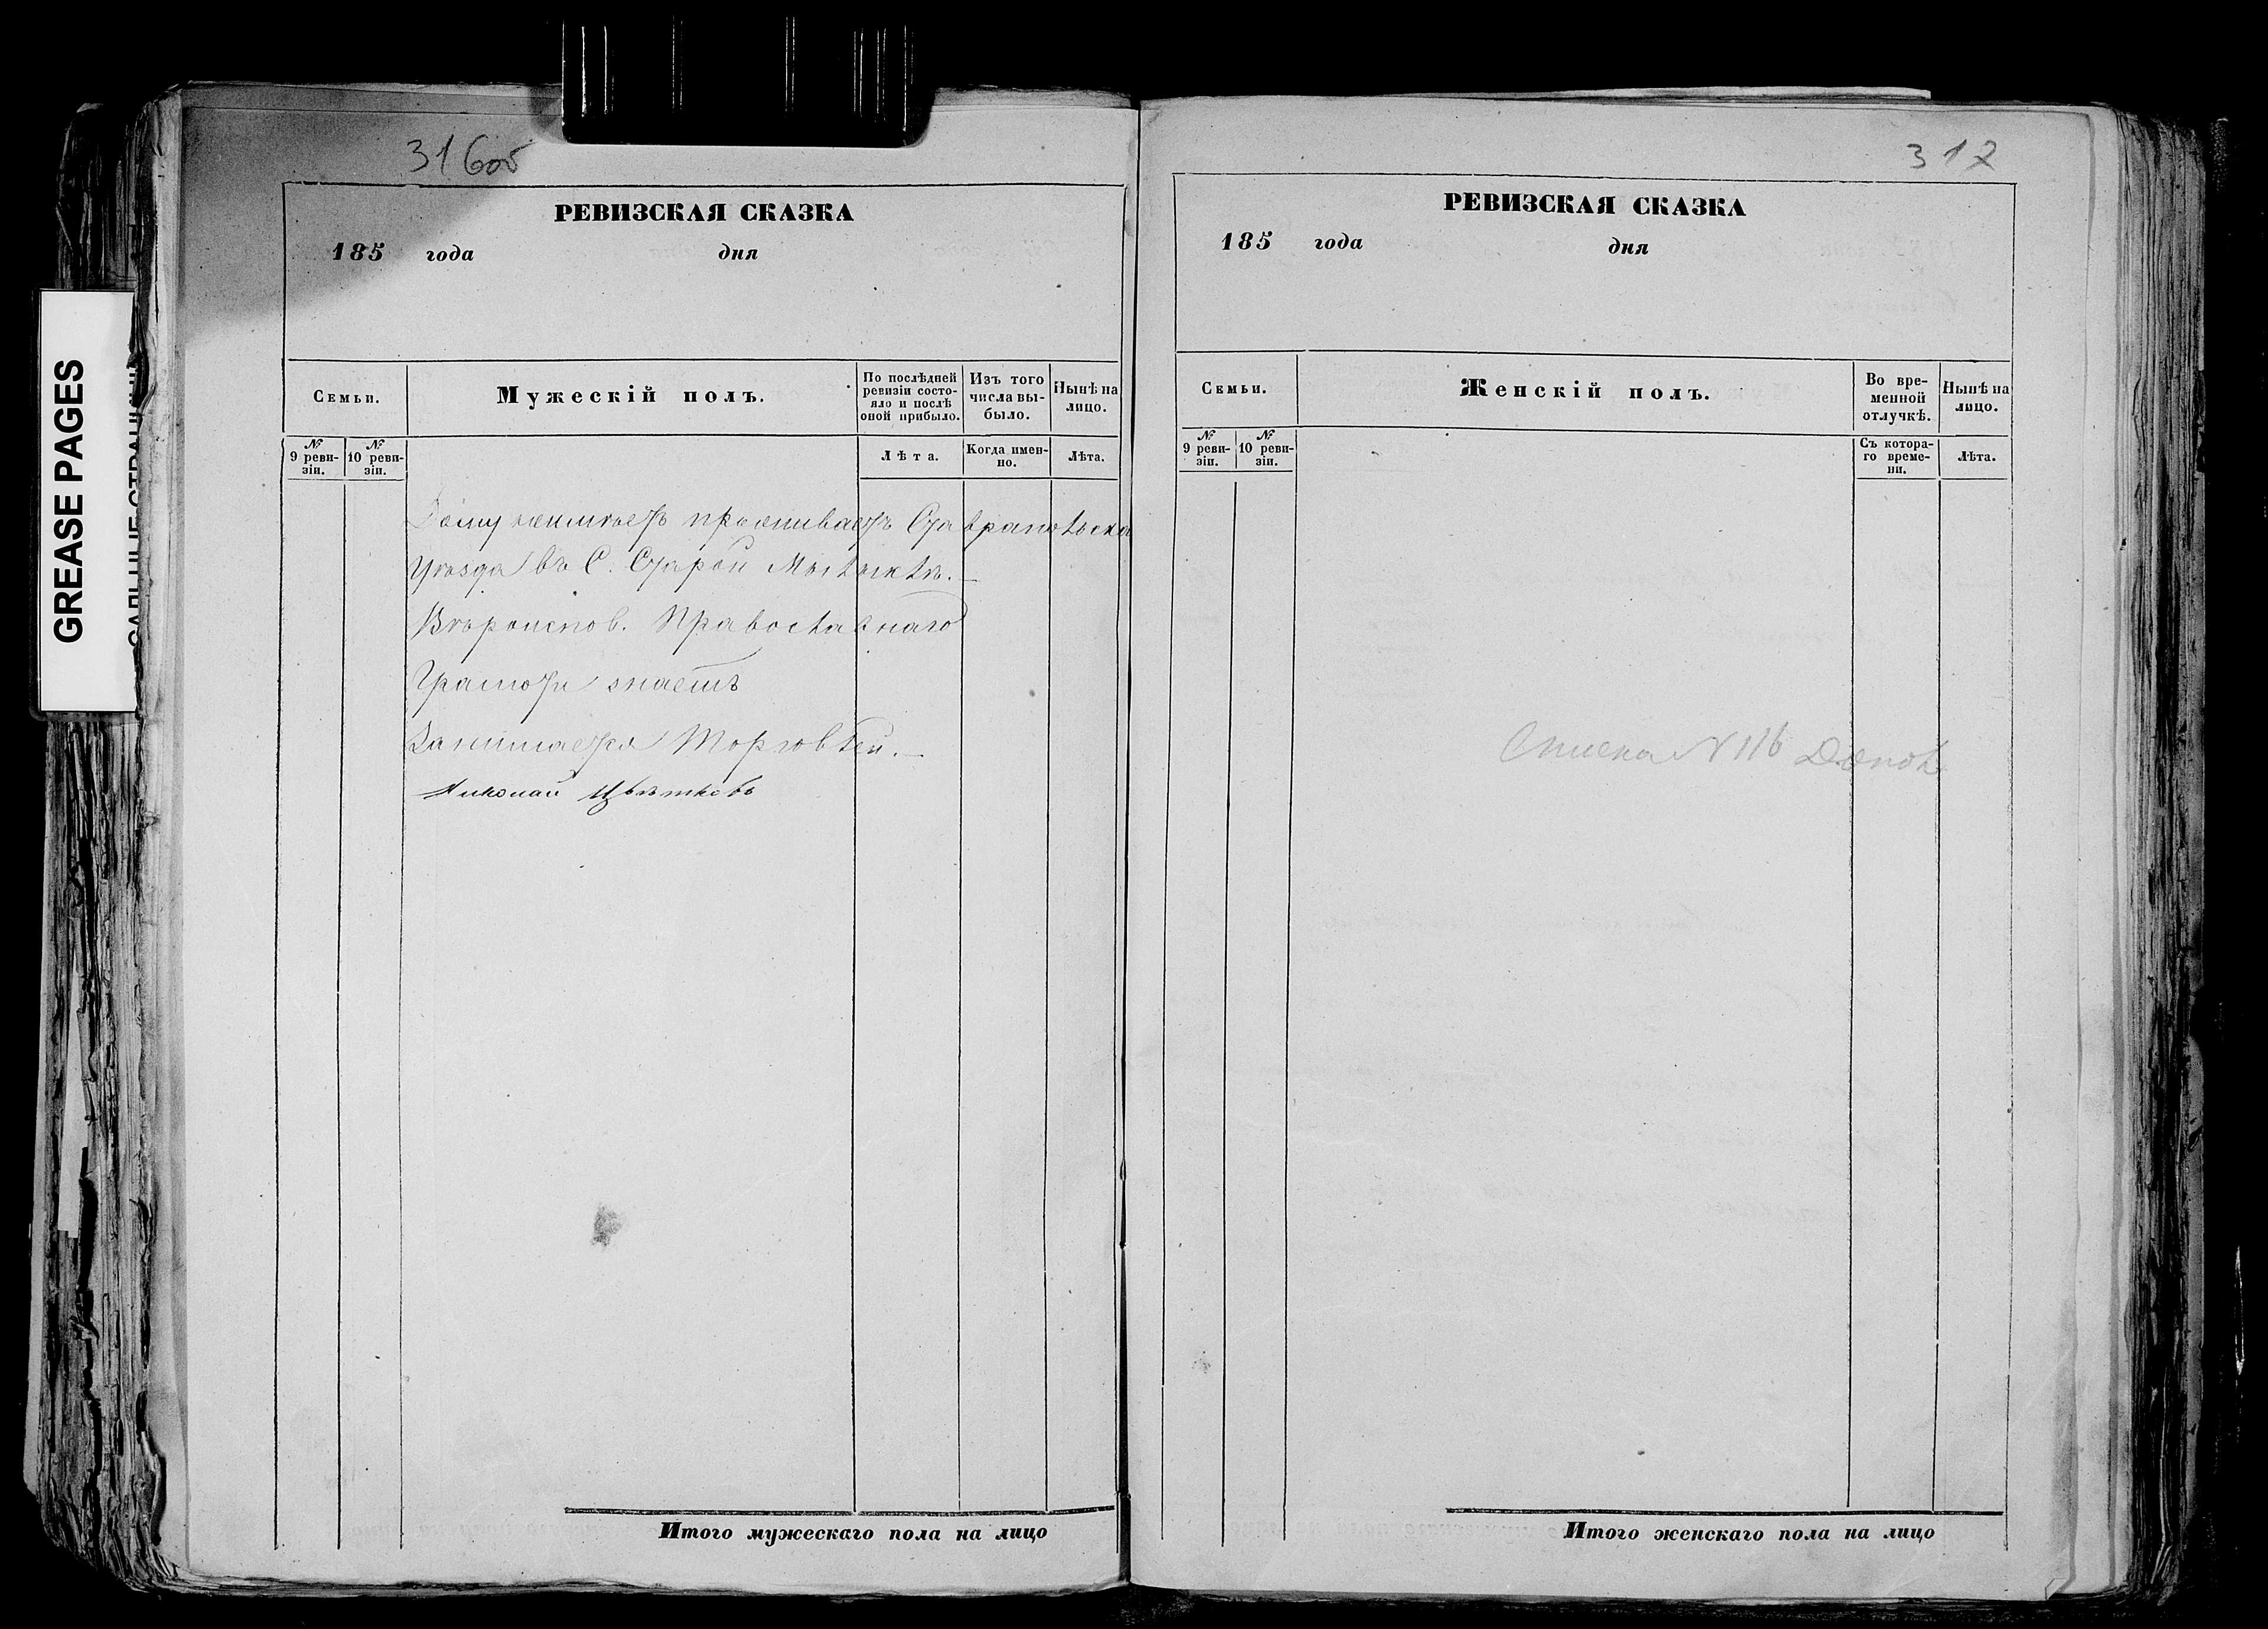 GREASE PAGES
31606
РЕВИЗСКАЯ СКАЗКА
185 года дня
Семьи.
Мужескій полъ.
По послѣдней ревизіи состояло и послѣ оной прибыло.
Изъ того числа выбыло.
Нынѣ на лицо.
№ 9 ревизіи.
№ 10 ревизіи.
Лѣта.
Когда именно.
Лѣта.
Дому неимѣетъ проживаетъ Ставропольска
Уѣзда въ С. Старой
Вѣроиспов. Православнаго
Грамоти знаетъ
Занимается Торговлей.
Николай Цвѣтковъ
Итого мужескаго пола на лицо
317
РЕВИЗСКАЯ СКАЗКА
185 года дня
Семьи.
Женскій полъ.
Во временной отлучкѣ.
Нынѣ на лицо.
№ 9 ревизіи.
№ 10 ревизіи.
Съ котораго времени.
Лѣта.
N 116
Итого женскаго пола на лицо